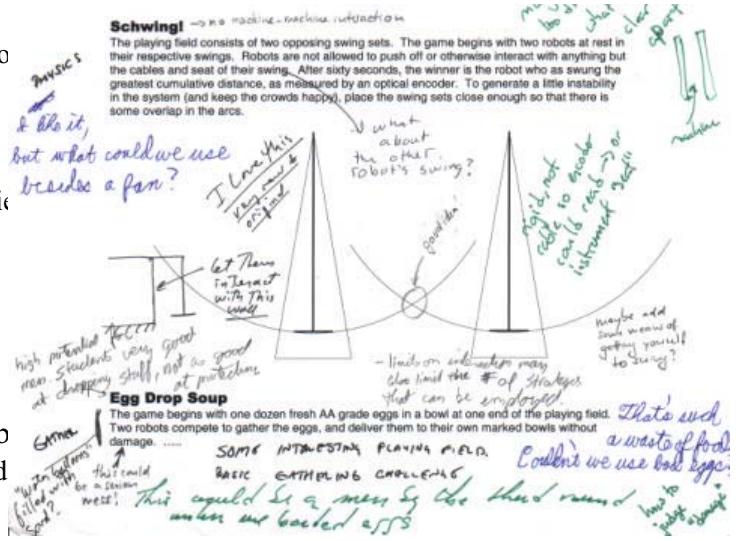 Schwing! → no machine-machine interaction
The playing field consists of two opposing swing sets. The game begins with two robots at rest in
their respective swings. Robots are not allowed to push off or otherwise interact with anything but
the cables and seat of their swing. After sixty seconds, the winner is the robot who as swung the
greatest cumulative distance, as measured by an optical encoder. To generate a little instability
in the system (and keep the crowds happy), place the swing sets close enough so that there is
some overlap in the arcs.
PHYSICS
I like it,
but what could we use
besides a fan?
I Love this
very new &
original
what
about
the other
robot's swing?
good idea!
rigid, not
cable so encoder
could read → or
instrument "seat"
apart
machine
Let Them
interact
with This
wall
high potential for
mess. Students very good
at dropping stuff, not as good
at protecting
- limits on interaction may
also limit the # of strategies
that can be employed.
maybe add
some means of
getting yourself
to swing?
Egg Drop Soup
The game begins with one dozen fresh AA grade eggs in a bowl at one end of the playing field.
Two robots compete to gather the eggs, and deliver them to their own marked bowls without
damage. .....
GATHER
this could
be a serious
mess!
filled with
sand?
SOME INTERESTING PLAYING FIELD.
BASIC GATHERING CHALLENGE
That's such
a waste of food
Couldn't we use bad eggs?
This could be a mess by the third round
unless we boiled eggs
how to
judge
"damage"